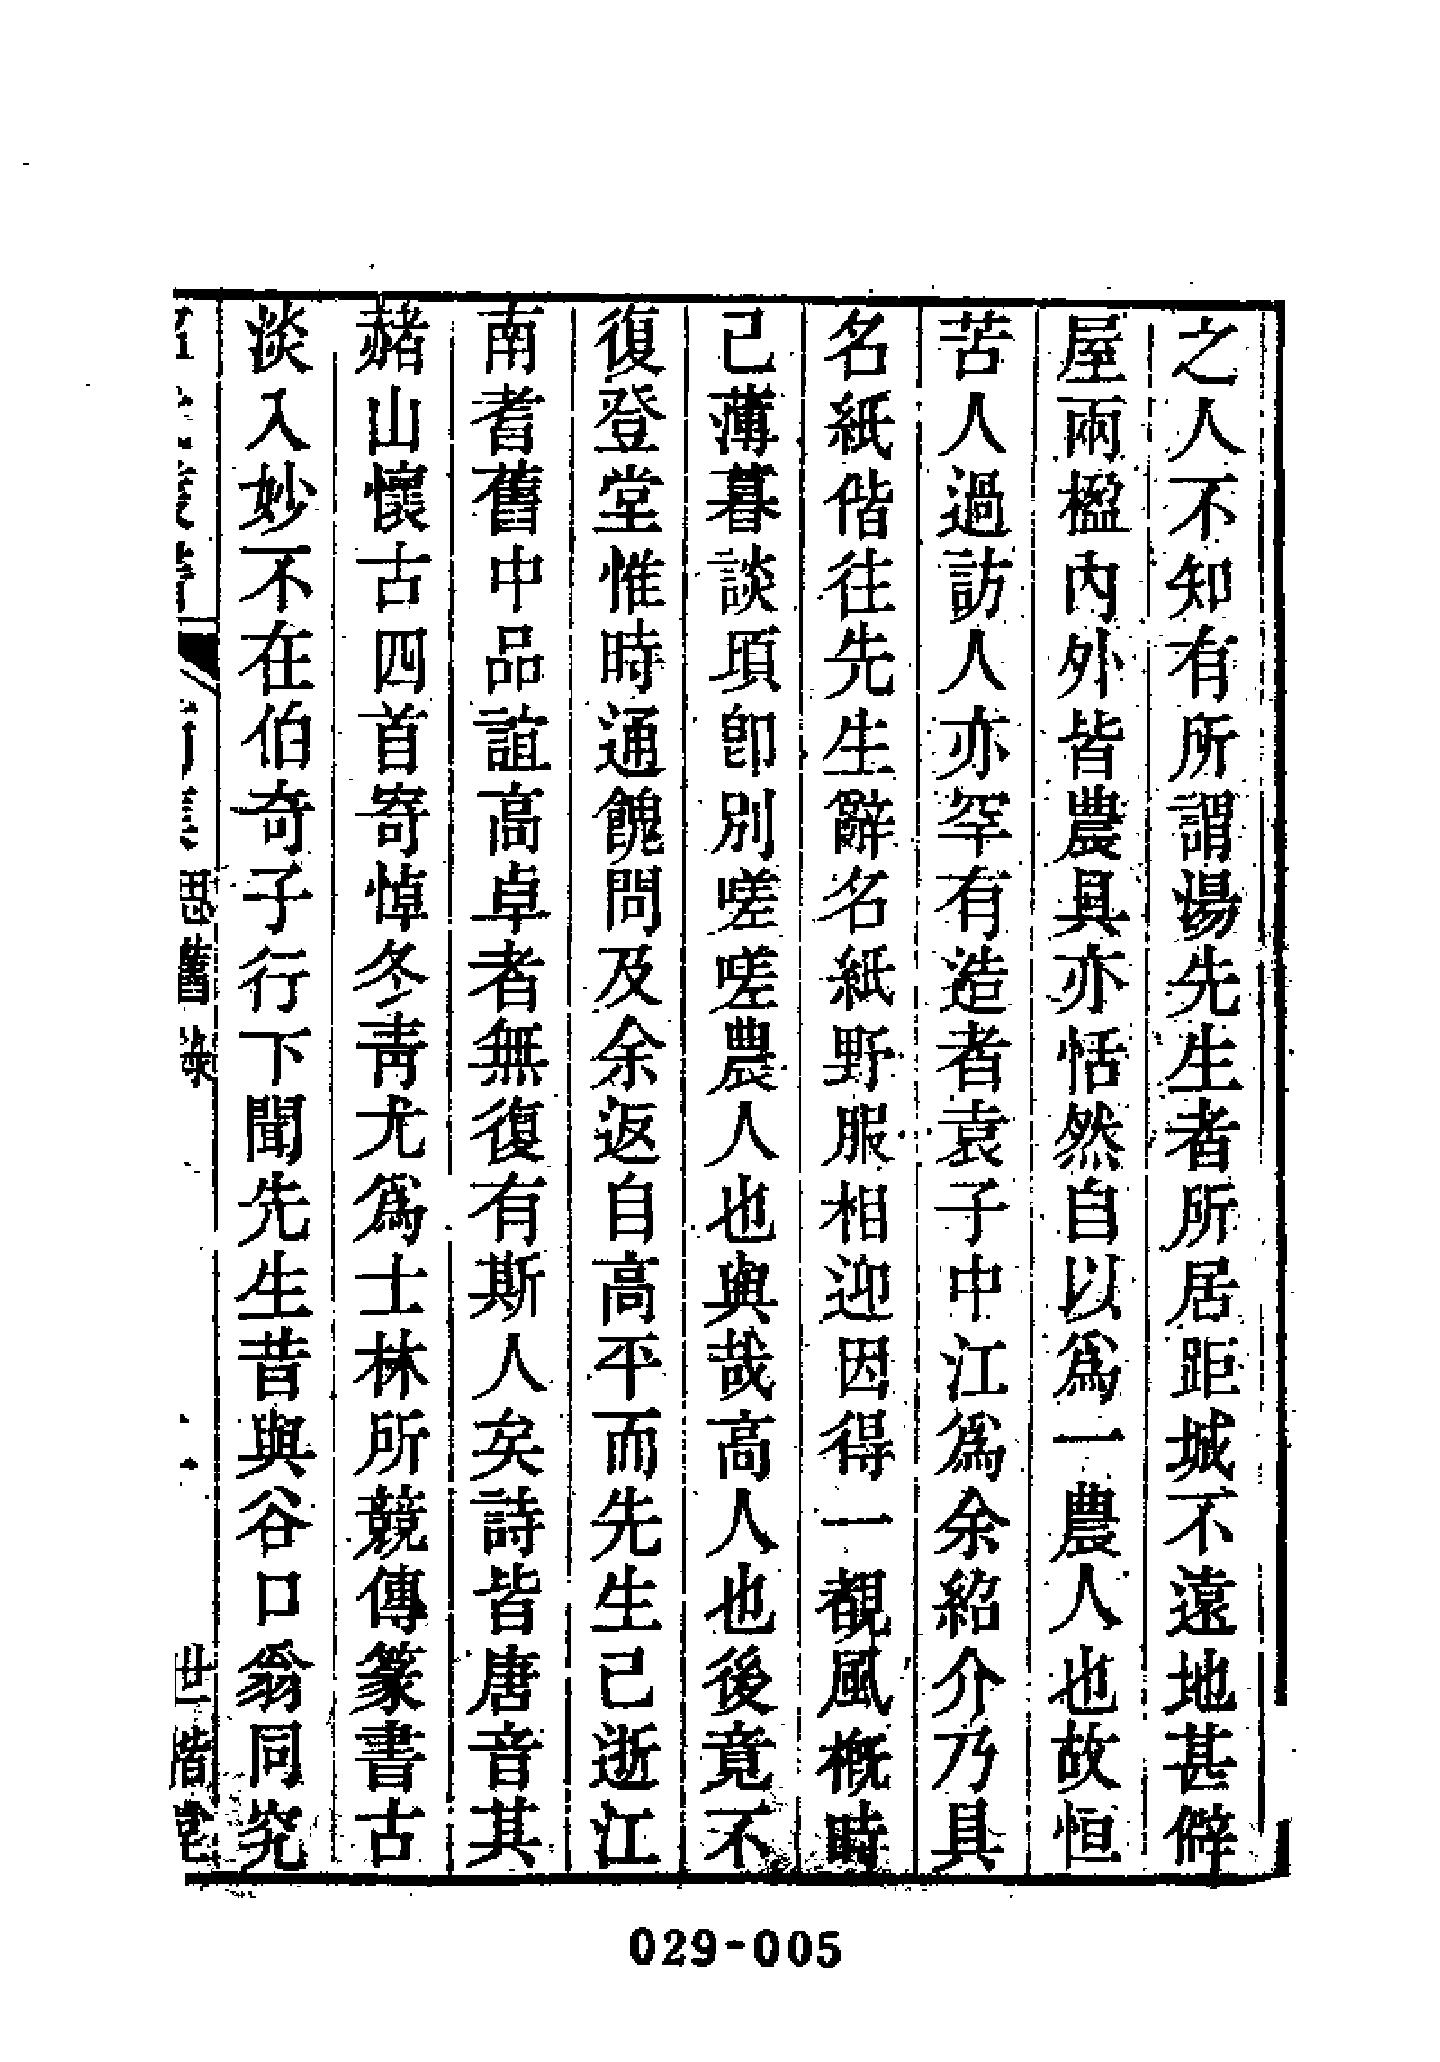 之人不知有所謂湯先生者所居距城不遠地甚僻
屋兩楹內外皆農具亦恬然自以爲一農人也故恒
苦人過訪人亦罕有造者袁子中江爲余紹介乃具
名紙偕往先生辭名紙野服相迎因得一覩風概時
已薄暮談頃卽別嗟嗟農人也與哉高人也後竟不
復登堂惟時通餽問及余返自高平而先生已逝江
南耆舊中品誼高卓者無復有斯人矣詩皆唐音其
赭山懷古四首寄悼冬青尤爲士林所競傳篆書古
淡入妙不在伯奇子行下聞先生昔與谷口翁同究
思舊錄
世楷堂
029-005